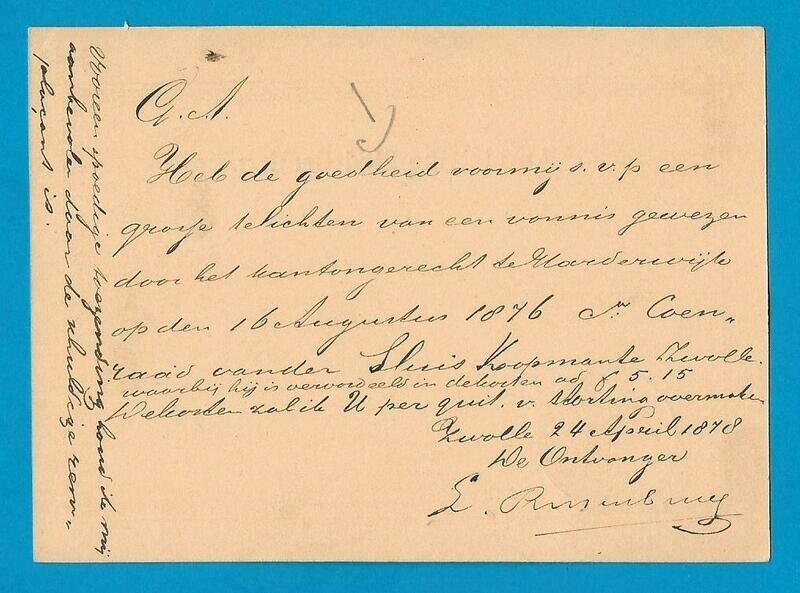 G. A.
Heb de goedheid voor mij s. v. p een
grosse te lichten van een vonnis gewezen
door het kantongerecht te Harderwijk
op den 16 Augustus 1876 Coen„
raad vander Sluis Koopman te Zwolle.
waarbij hij is veroordeeld in de kosten ad ƒ 5.15
De kosten zal ik U per quit. v. storting overmaken
Zwolle 24 April 1878
De Ontvanger
E.
Voor een spoedige toezending houd ik mij
aanbevolen daar de schuldige remn„
plaçant is.